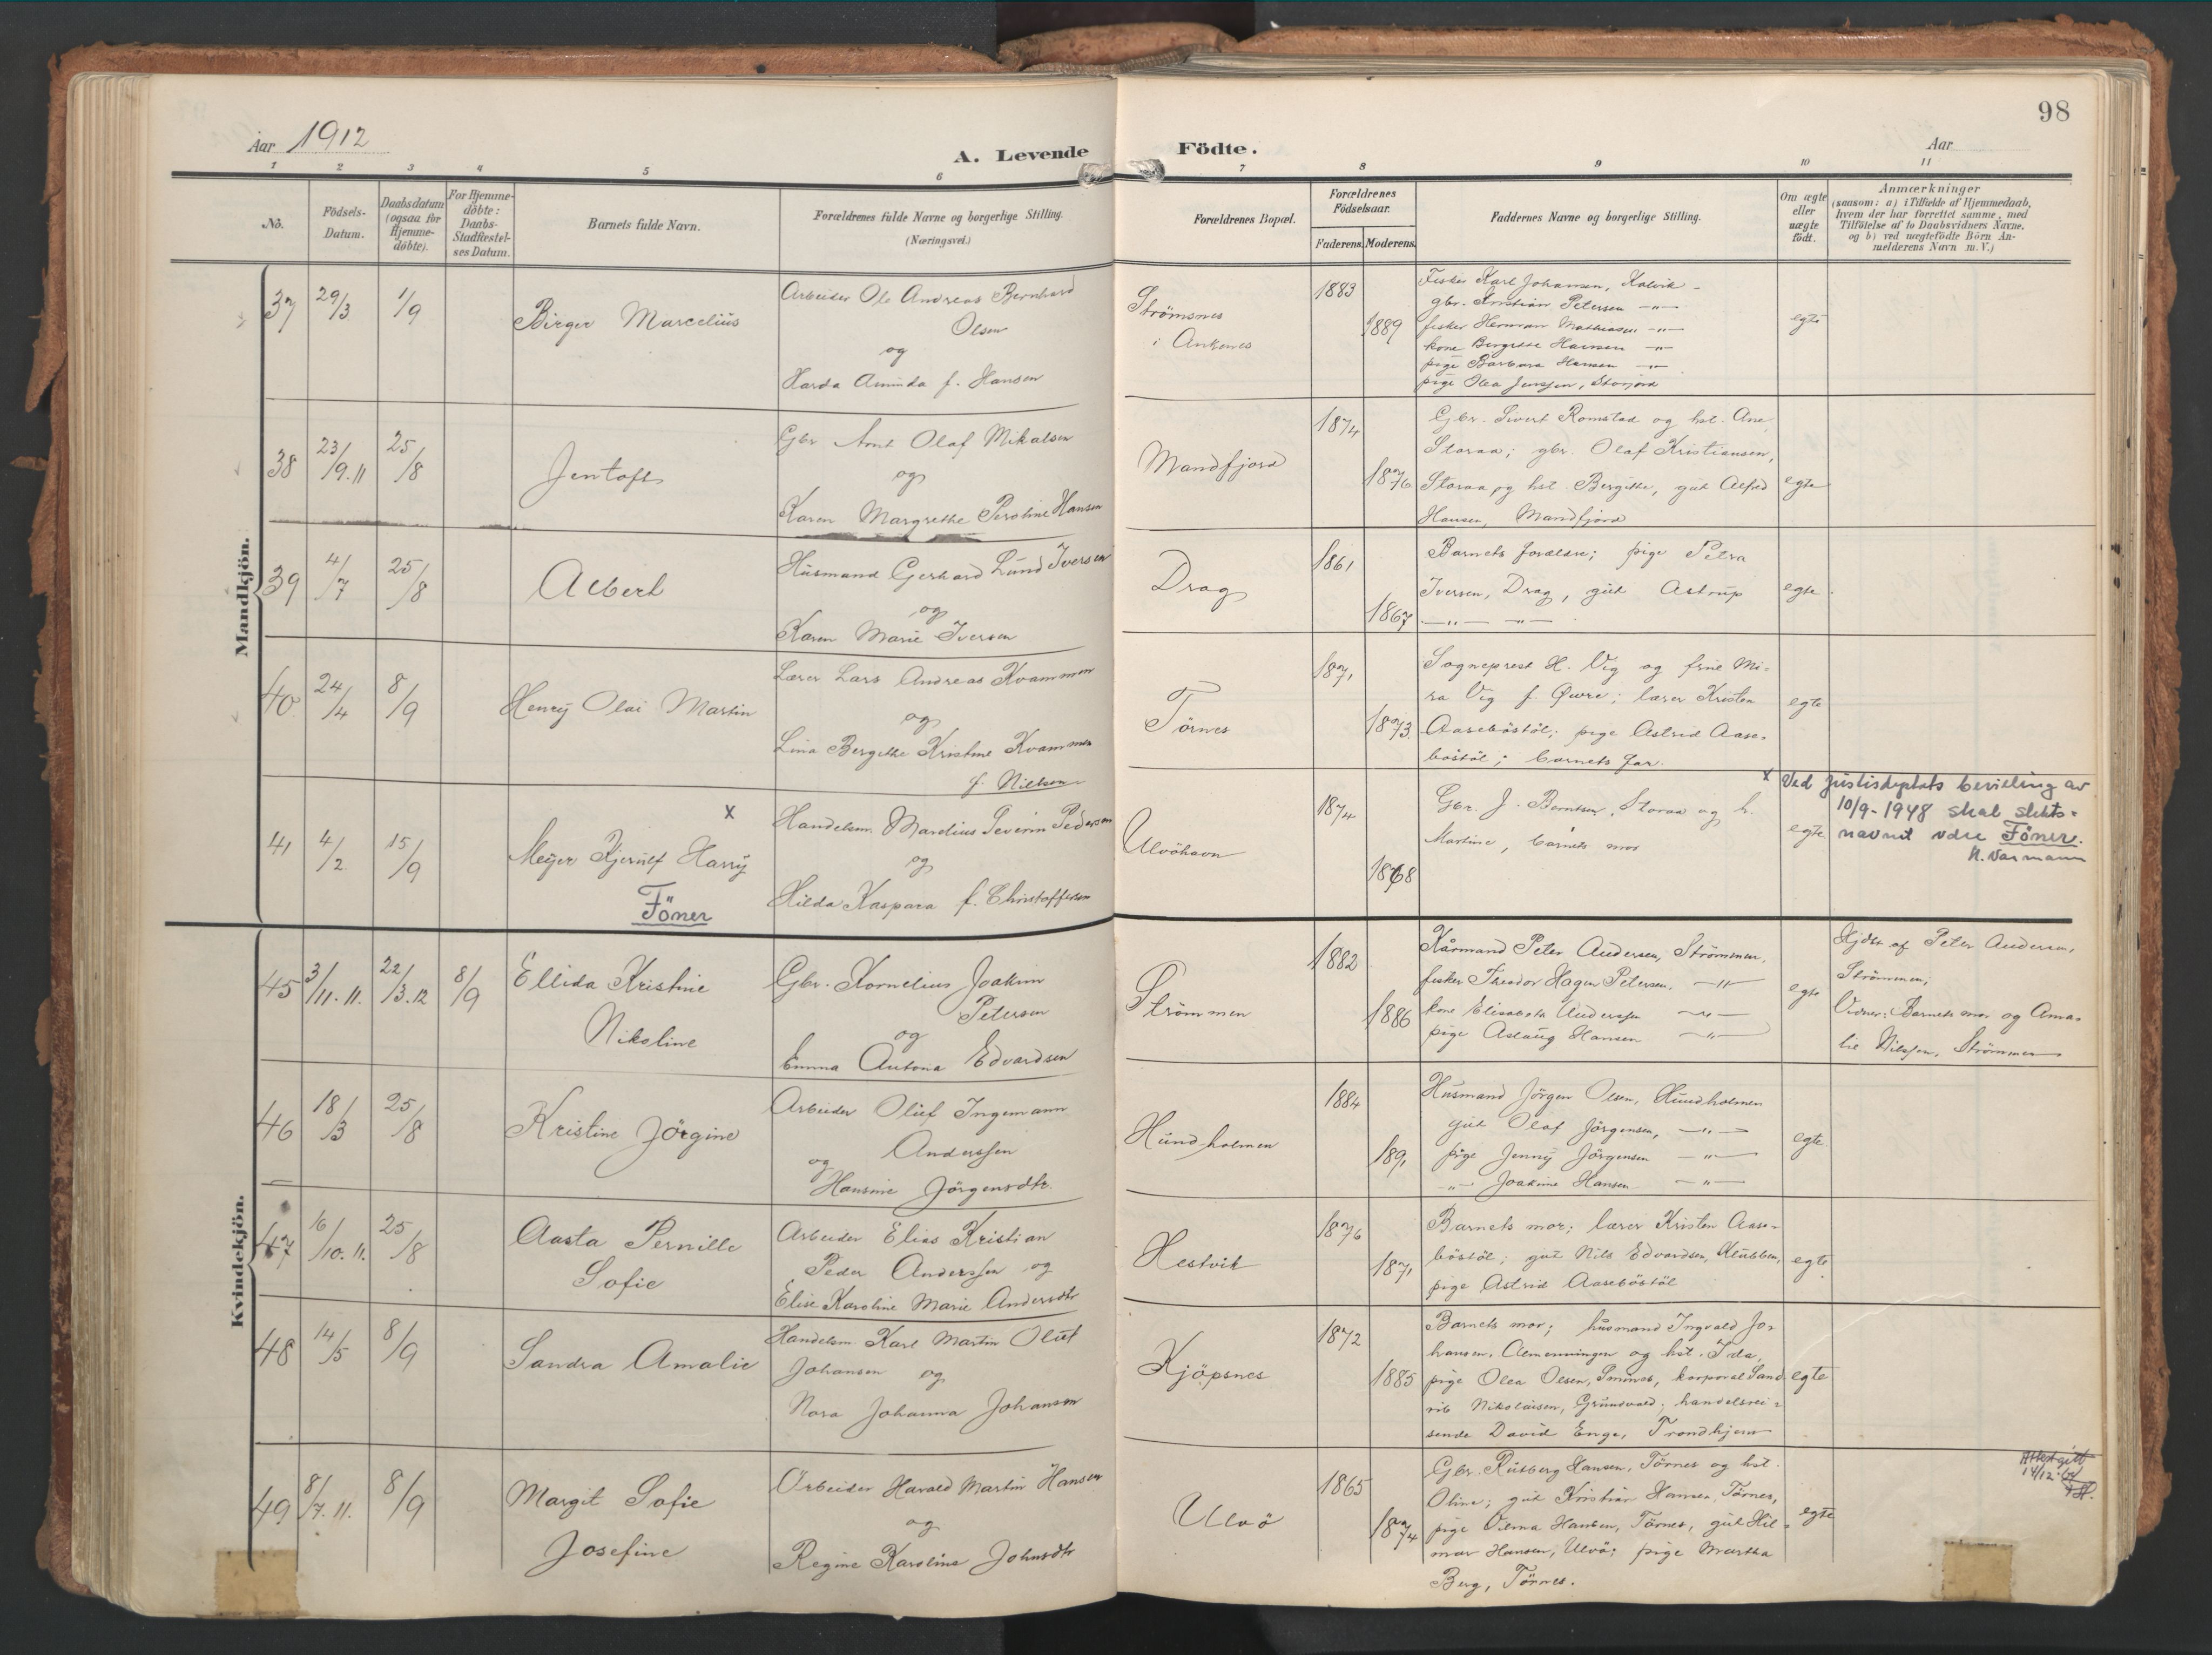 98
Aar 1912
A. Levende Födte.
Aar
1 2 3 4 5 6 7 8 9 10 11
No.
Födsels-
Datum.
Daabsdatum
(ogsaa for
Hjemme-
döbte).
For Hjemme-
döbte:
Daabs-
Stadfæstel-
ses Datum.
Barnets fulde Navn.
Forældrenes fulde Navne og borgerlige Stilling.
(Næringsvei.)
Forældrenes Bopæl.
Forældrenes
Födselsaar.
Faderens. Moderens.
Faddernes Navne og borgerlige Stilling.
Om ægte
eller
uægte
födt.
Anmærkninger
(saasom: a) i Tilfælde af Hjemmedaab,
hvem der har forrettet samme, med
Tilföielse af to Daabsvidners Navne,
og b) ved uægtefödte Börn An-
melderens Navn m. V.)
Mandkjön.
37 29/3 1/9
Birger Marcelius
Arbeider Ole Andreas Bernhard
Olsen
og
Harda Aminda f. Hansen
Strömsnes
i Ankenes
1883
1889
Fisker Karl Johansen, Kalvik -
gbr. Kristian Petersen -"-
fisker Herman Mathiasen -"-
kone Bergitte Hansen -"-
pige Barbara Hansen -"-
pige Olea Jenssen, Storjord
egte
38 23/9.11 25/8
Jentoft
Gbr Arnt Olaf Mikalsen
og
Karen Margrethe Peroline Hansen
Mandfjord
1874
1876
Gbr. Sivert Romstad og hst. Ane,
Storaa; gbr. Olaf Kristiansen,
Storaa og hst. Bergitte, gut Alfred
Hansen, Mandfjord
egte
39 4/7 25/8
Albert
Husmand Gerhard Lund Iversen
og
Karen Marie Iversen
Drag
1861
1867
Barnets forældre; pige Petra
Iversen, Drag, gut Astrup
-"- -"-
egte
40 24/4 8/9
Henry Olai Martin
Lærer Lars Andreas Kvammen
og
Lina Bergitte Kristine Kvammen
f. Nielsen
Törnes
1871
1873
Sogneprest H. Vig og frue Mi-
ra Vig f. Øvre; lærer Kristen
Aaseböstöl; pige Astrid Aase-
böstöl; barnets far.
egte
41 4/2 15/9
x
Meyer Kjerulf Harry
Föner
Handelsm. Mardius Severin Pedersen
og
Hilda Kaspara f. Christoffersen
Ulvöhavn
1874
1868
Gbr. J. Berntsen, Storaa og h.
Martine, barnets mor
egte
x Ved justisdeptets bevilling av
10/9-1948 skal slekts-
navnet være Föner.
N. Varmann
Kvindekjön.
45 3/11.11. 22/3.12 8/9
Ellida Kristine
Nikoline
Gbr. Kornelius Joakim
Petersen
og
Emma Antona Edvardsen
Strömmen
1882
1886
Kårmand Peter Andersen, Strömmen,
fisker Theodor Hagen Petersen, -"-
kone Elisabeth Anderssen -"-
pige Aslaug Hansen -"-
egte
Hjdbt af Peter Andersen,
Strömmen,
Vidner: Barnets mor og Ama-
lie Nilssen, Strömmen
46 18/3 25/8
Kristine Jörgine
Arbeider Oluf Ingemann
Anderssen
og
Hansine Jörgensdtr.
Hundholmen
1884
1891
Husmand Jörgen Olsen, Hundholmen
gut Olaf Jörgensen, -"-
pige Jenny Jörgensen -"-
-"- Joakime Hansen -"-
egte
47 16/10.11. 25/8
Aasta Pernille
Sofie
Arbeider Elias Kristian
Peder Anderssen og
Elise Karoline Marie Andersdtr
Hestvik
1876
1871
Barnets mor; lærer Kristen Aase-
böstöl; gut Nils Edvardsen, Klubben,
pige Astrid Aaseböstöl
egte
48 14/5 8/9
Sandra Amalie
Handelsm. Karl Martin Oluf
Johansen og
Nora Johanna Johansen
Kjöpsnes
1872
1885
Barnets mor; husmand Ingvald Jo-
hansen, Almenningen og hst. Ida,
pige Olea Olsen, korporal Sand
Nikolaisen, Grunvold; handelsrei-
sende David Enge, Trondhjem
egte
49 8/7.11. 8/9
Margit Sofie
Josefine
Arbeider Harald Martin Hansen
og
Regine Karoline Johnsdtr
Ulvö
1865
1874
Gbr. Rutberg Hansen, Törnes og hst.
Oline; gut Kristian Hansen, Törnes,
pige Vilma Hansen, Törnes, gut Hil-
mar Hansen, Ulvö; pige Martha
Berg, Törnes.
egte
Attest gitt
14/12